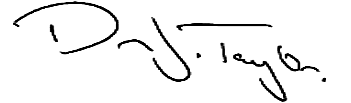 D. J. Taylor.